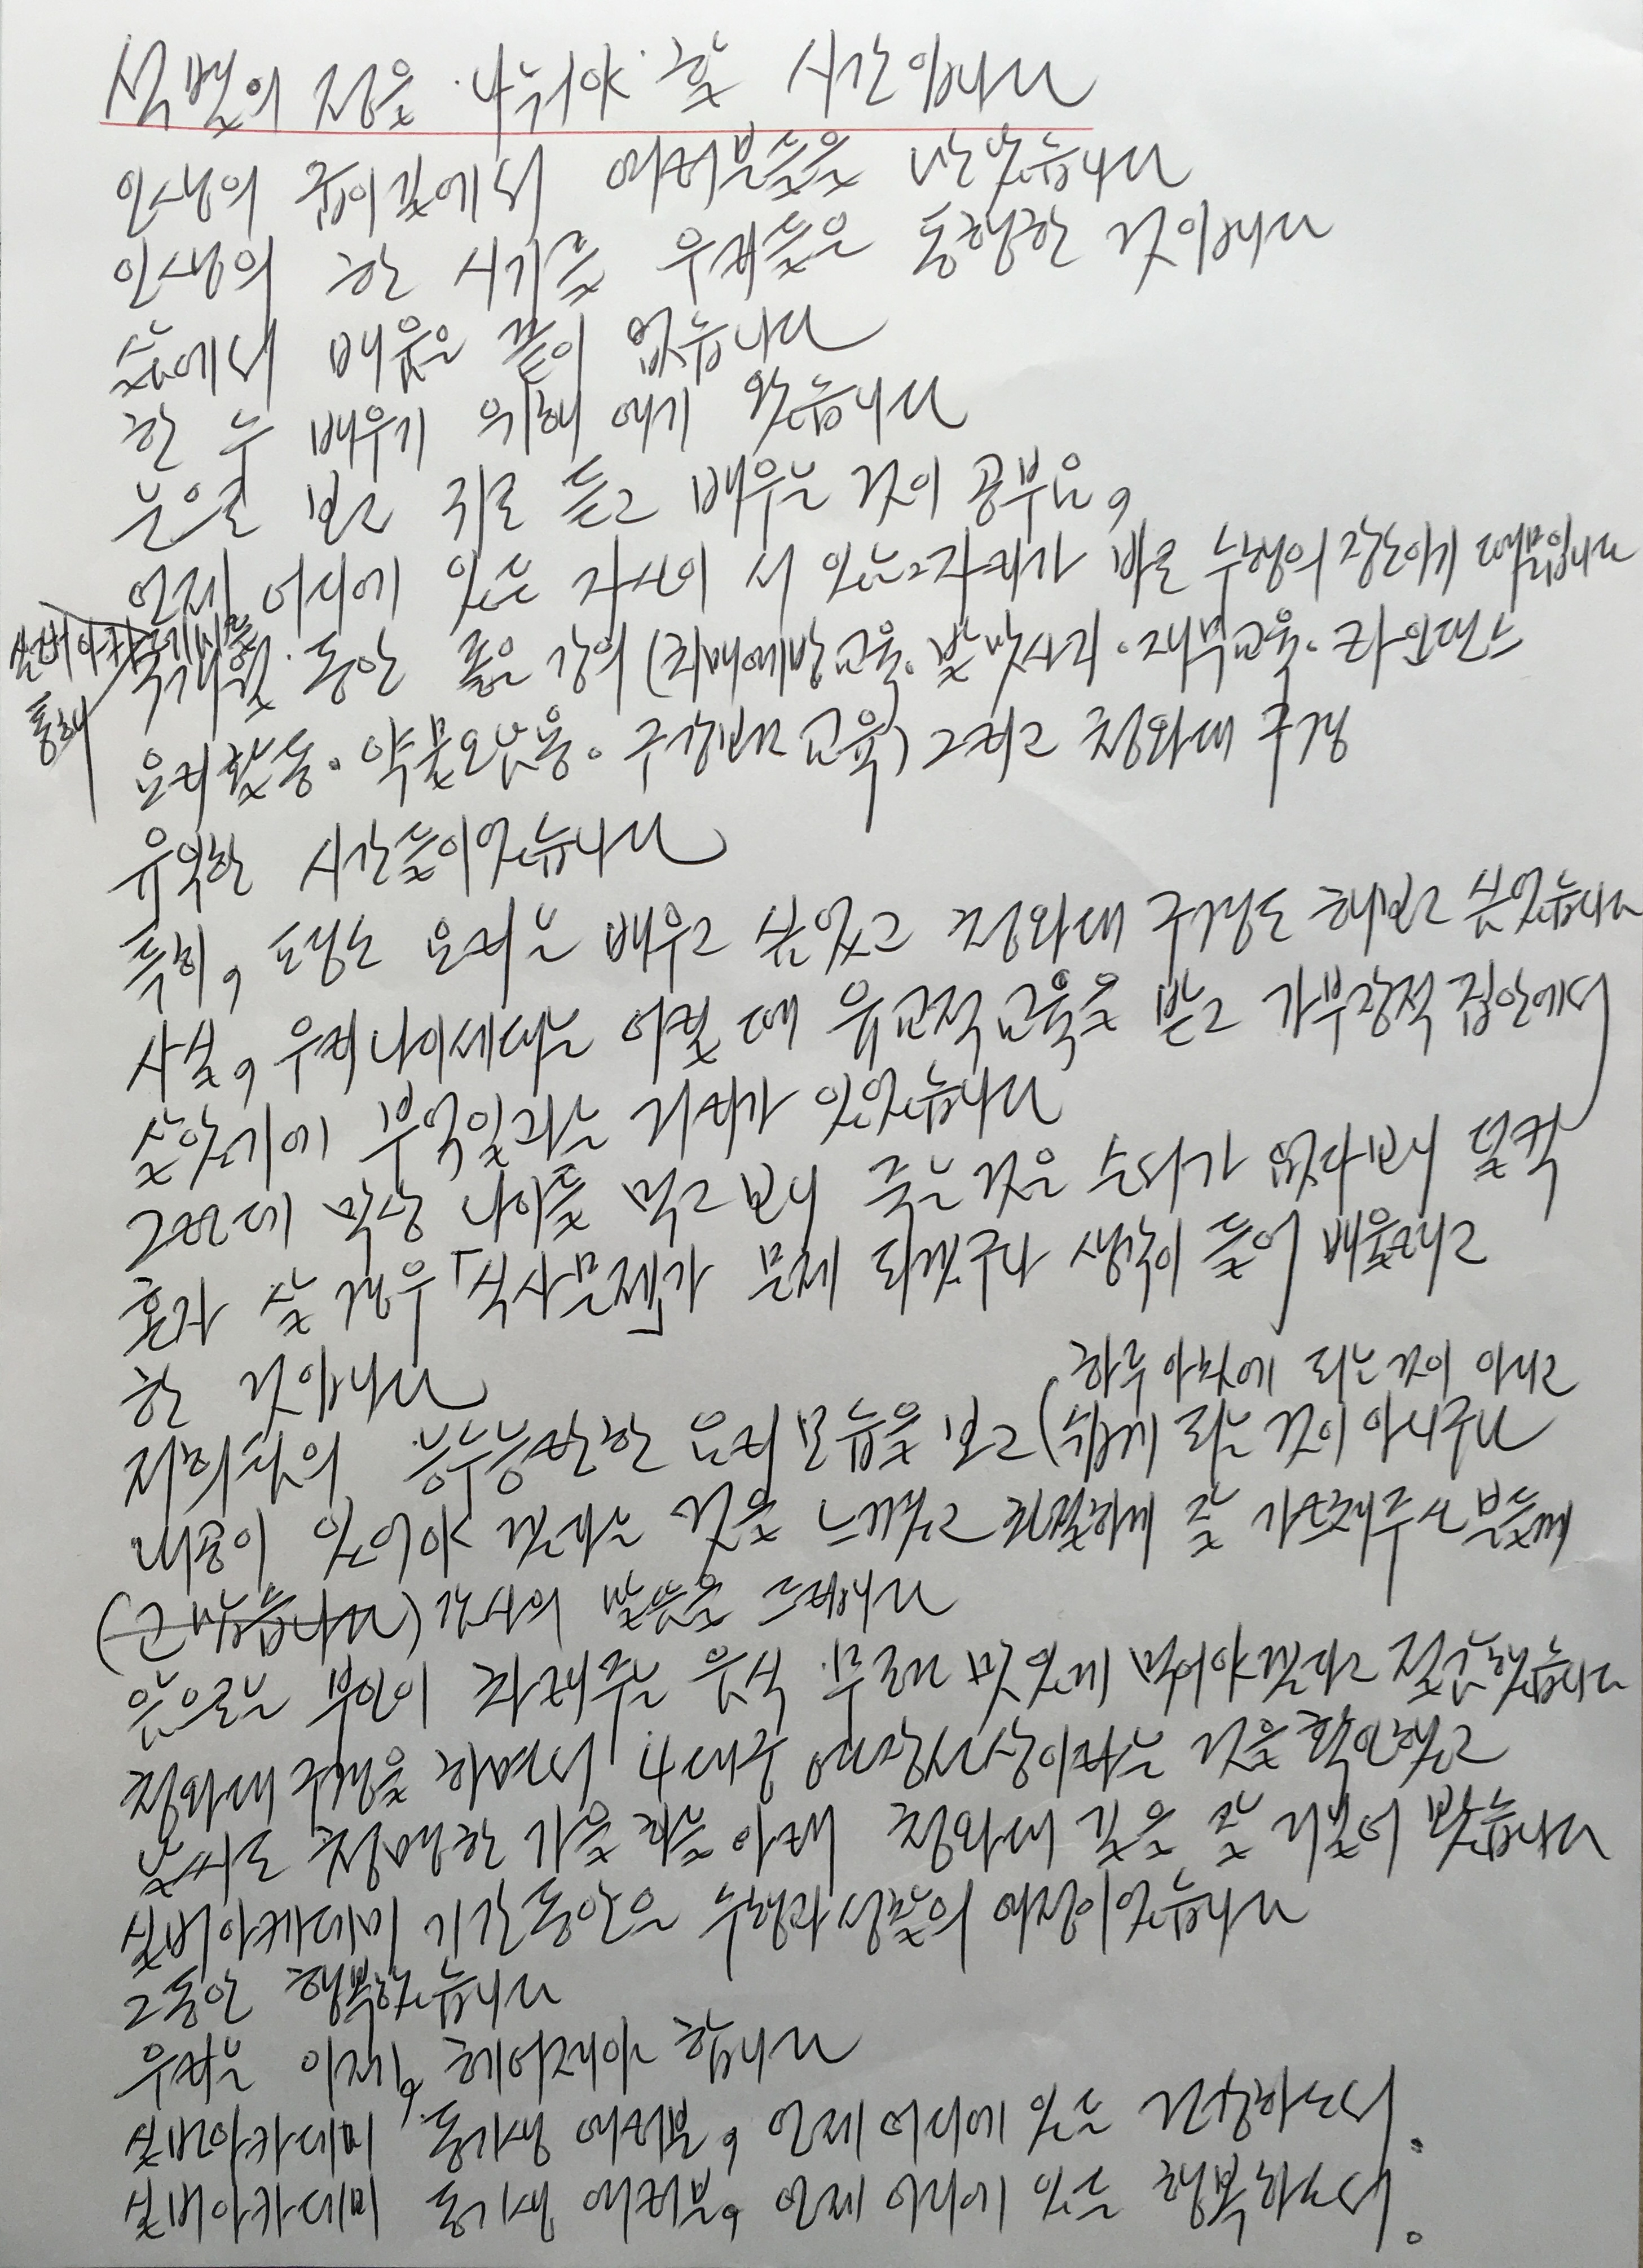 석별의 정을 나눠야 할 시간입니다
인생의 굽이길에서 여러분들을 만났습니다
인생의 한 시기를 우리들은 동행한 것입니다
삶에서 배움은 끝이 없습니다
한 수 배우기 위해 여기 왔습니다
눈으로 보고 귀로 듣고 배우는 것이 공부요,
언제 어디에 있든 자신이 서 있는 자리가 바로 수행의 장소이기 때문입니다
실버아카데미를
통해
동안 좋은 강의 (치매예방교육. 발맛사지. 재무교육. 라인댄스
요리활동. 약물오남용. 구강보건교육) 그리고 청와대 구경
유익한 시간들이었습니다
특히, 평소 요리는 배우고 싶었고 청와대 구경도 해보고 싶었습니다
사실, 우리 나이세대는 어릴 때 유교적 교육을 받고 가부장적 집안에서
살았기에 부엌일과는 거리가 있었습니다
그런데 막상 나이들 먹고 보니 죽는 것은 순서가 없다보니 덜컥
혼자 살 경우「식사문제」가 문제 되겠구나 생각이 들어 배울려고
한 것입니다
하루 아침에 되는 것이 아니고
저희 의 능수능란한 요리 모습을 보고 (쉽게 되는 것이 아니구나
내공이 있어야 겠다는 것을 느꼈고 친절하게 잘 가르쳐주신 분들께
( ) 감사의 말씀을 드립니다
앞으로는 부인이 차려주는 음식 무조건 맛있게 먹어야겠다고 절감했습니다
청와대 구경을 하면서 4대궁 연장선상이라는 것을 확인했고
날씨도 청명한 가을 하늘 아래 청와대 길을 잘 걸어 봤습니다
실버아카데미 기간동안은 수행과 성찰의 여정이었습니다
그동안 행복했습니다
우리는 이제, 헤어져야 합니다
실버아카데미 동기생 여러분, 언제 어디에 있든 건강하소서.
실버아카데미 동기생 여러분, 언제 어디에 있든 행복하소서.